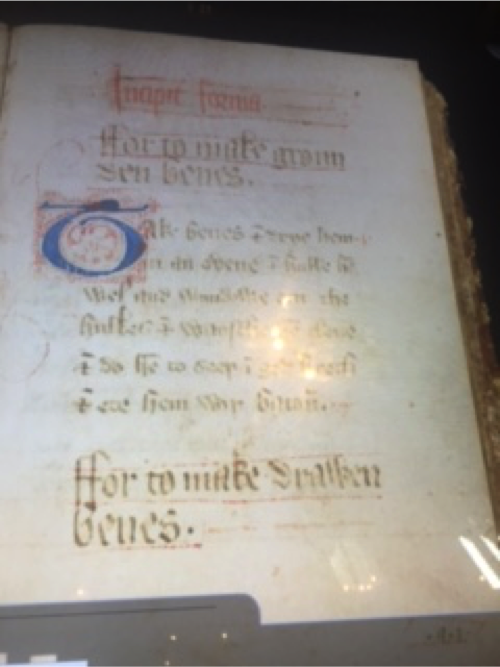 Incipit forma
ffor to make groun
den benes.
Take benes & drye hem
in an ovene & hulle hē
wel and wyndewe out the
hulkes & waysche hē clene
& do hē to seeþ ī gode broth
& ete hem wiþ bacoun.
ffor to make drawen
benes.